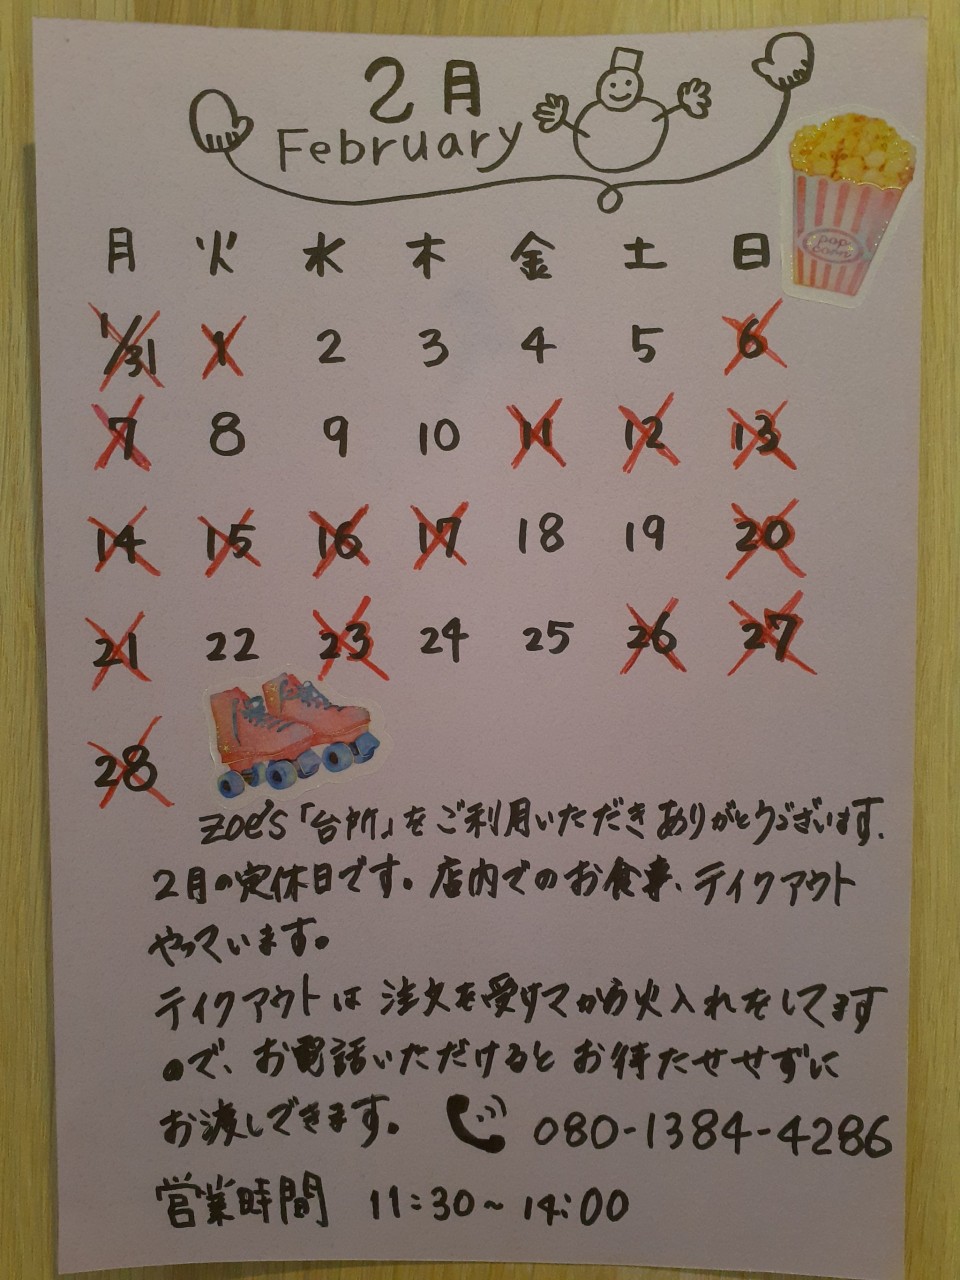 2月
February
pop corn
月 火 水 木 金 土 日
1/31 1 2 3 4 5 6
7 8 9 10 11 12 13
14 15 16 17 18 19 20
21 22 23 24 25 26 27
28
zoe's「台所」をご利用いただきありがとうございます.
2月の定休日です。店内でのお食事、テイクアウト
やっています。
テイクアウトは注文を受けてから火入れをしてます
ので、お電話いただけるとお待たせせずに
お渡しできます。 080-1384-4286
営業時間 11:30~14:00